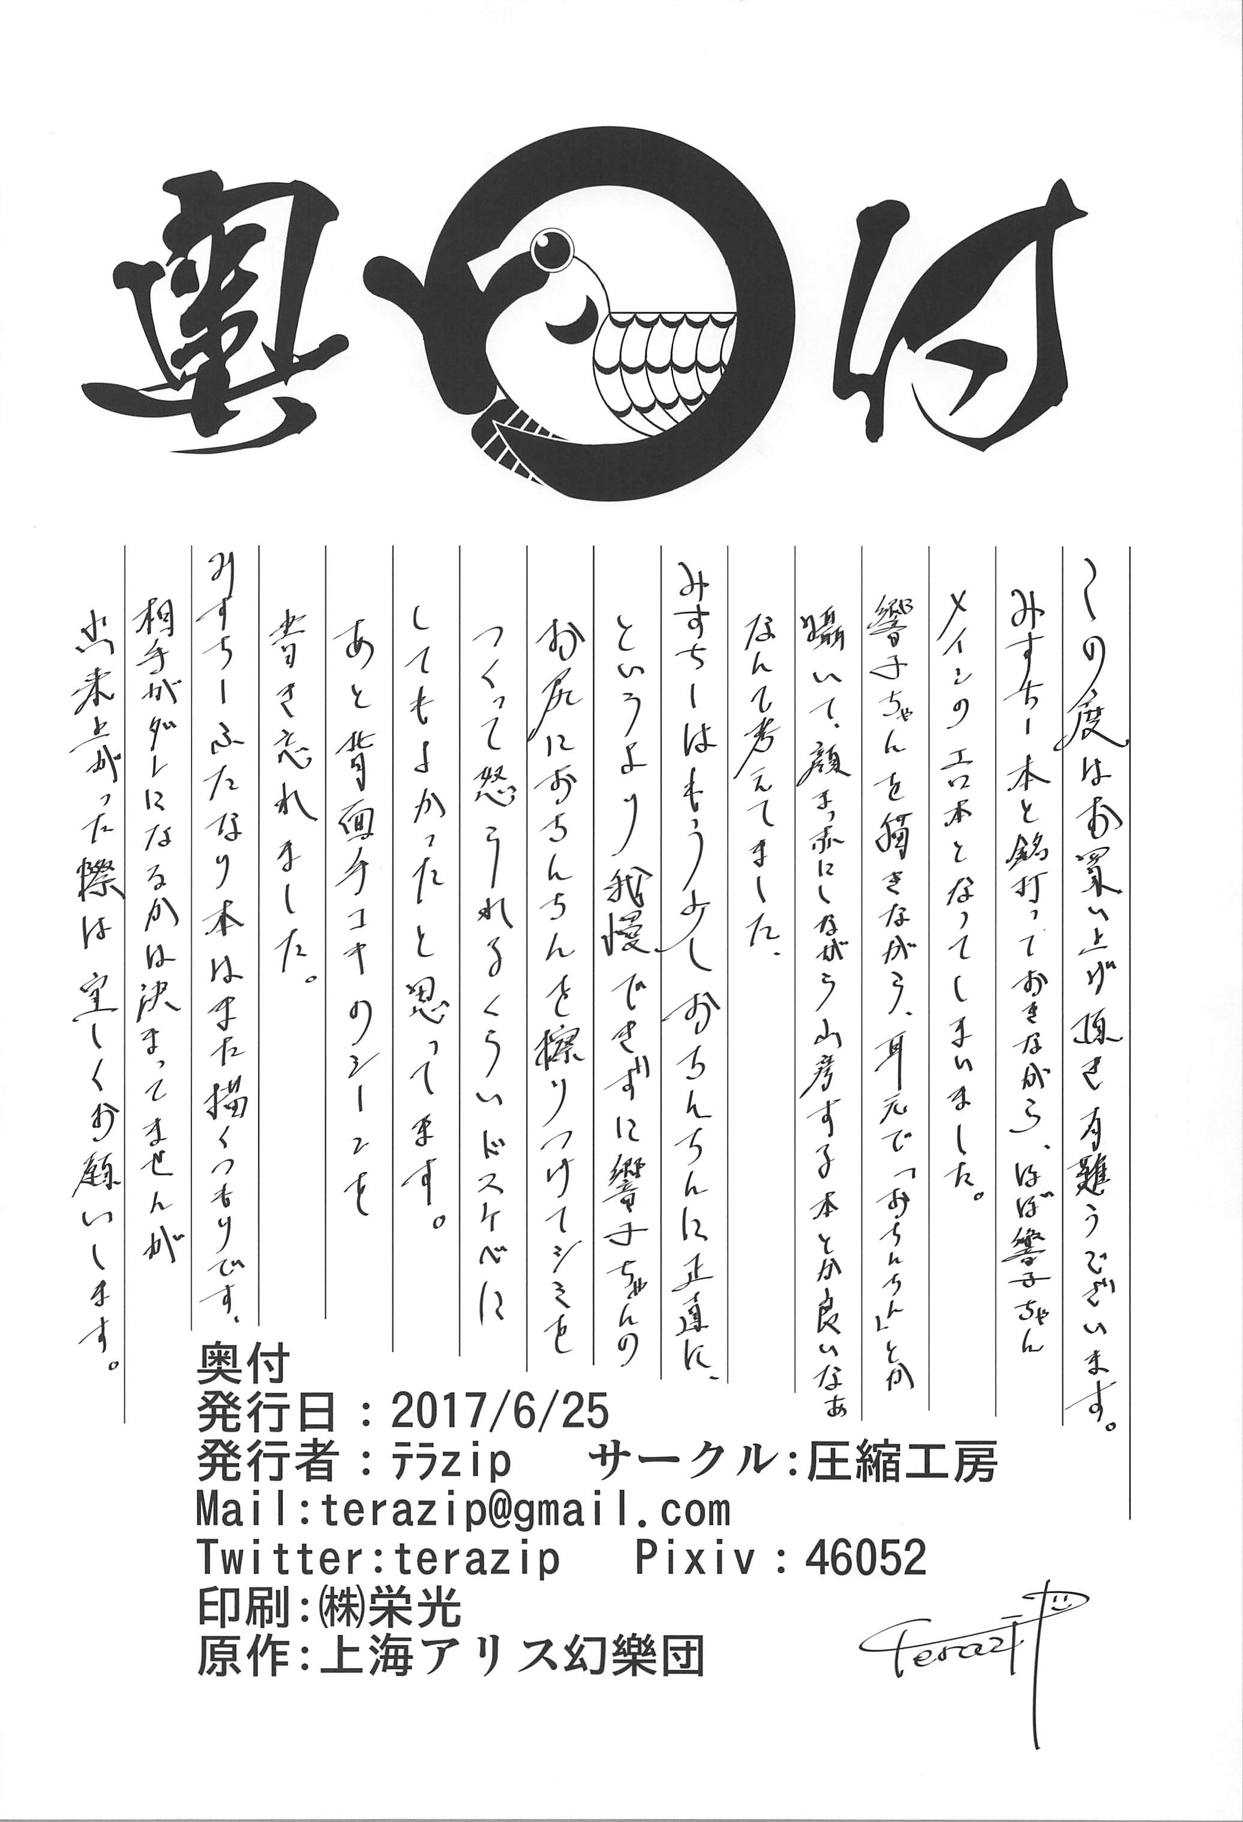 奥付
この度はお買い上げ頂き有難うございます。
みすちー本と銘打っておきながら、ほぼ響子ちゃん
メインのエロ本となってしまいました。
響子ちゃんを描きながら、耳元で「おちんちん」とか
囁いて、顔まっ赤にしながら山彦する本とか良いなぁ
なんて考えてました。
みすちーはもう少しおちんちんに正直に、
というより我慢できずに響子ちゃんの
お尻におちんちんを擦りつけてシミを
つくって怒られるくらいドスケベに
してもよかったと思ってます。
あと背面手コキのシーンを
書き忘れました。
みすちーふたなり本はまた描くつもりです。
相手がダレになるかは決まってませんが
出来上がった際は宜しくお願いします。
奥付
発行日：2017/6/25
発行者：ﾃﾗzip サークル:圧縮工房
Mail:terazip@gmail.com
Twitter:terazip Pixiv：46052
印刷:㈱栄光
原作:上海アリス幻樂団
terazip